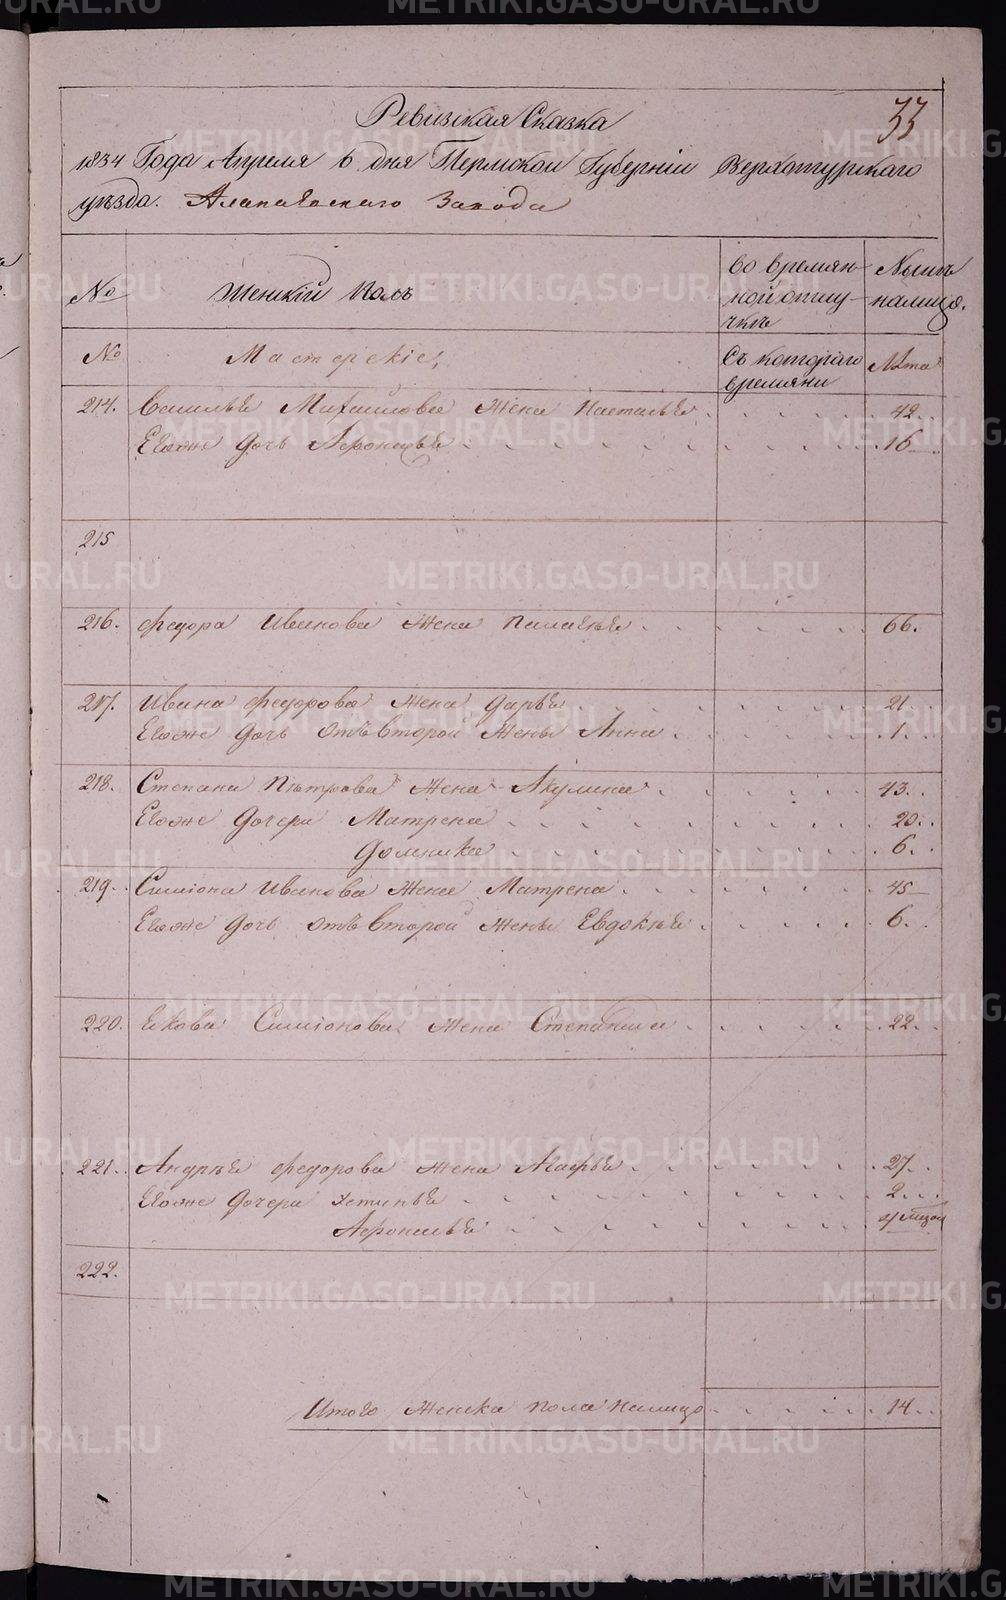 33
Ревизская Сказка
1834 Года Апреля 6 дня Пермской Губернии Верхотурскаго
уезда. Алапаевскаго Завода
№ Женский Полъ во времян- Ныне
ной отлу- налицо.
чке
№ Мастерские, Съ котораго Лета
времяни
214. Василья Михайлова Жена Наталья 42.
Егоже дочь Афонасья 16
215
216. Федора Иванова Жена Палагея 66.
217. Ивана Федорова Жена Дарья 21
Егоже дочь отъ Второй Жены Анна 1.
218. Степана Петрова Жена Акулина 43.
Егоже Дочери Матрена 20.
Домника 6.
219. Симиона Иванова Жена Матрена 45
Егоже дочь отъ Второй Жены Евдокея 6.
220. Якова Симионова Жена Степанида 22.
221. Андрея Федорова Жена Агафья 27.
Егоже Дочери Устинья 2.
Афонасья
222.
Итого Женска пола налицо 14.
METRIKI.GASO-URAL.RU